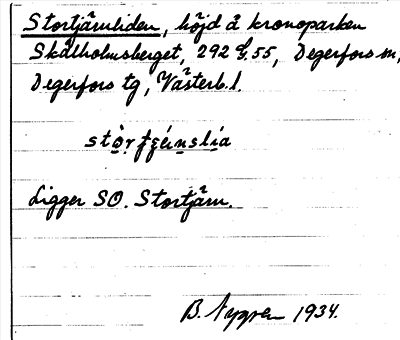 Stortjärnliden, höjd å kronoparken
Skålholmsberget, 292 G. 55, Degerfors sn,
Degerfors tg, Västerb. l.
Ligger SO. Stortjärn.
B. Nygren 1934.